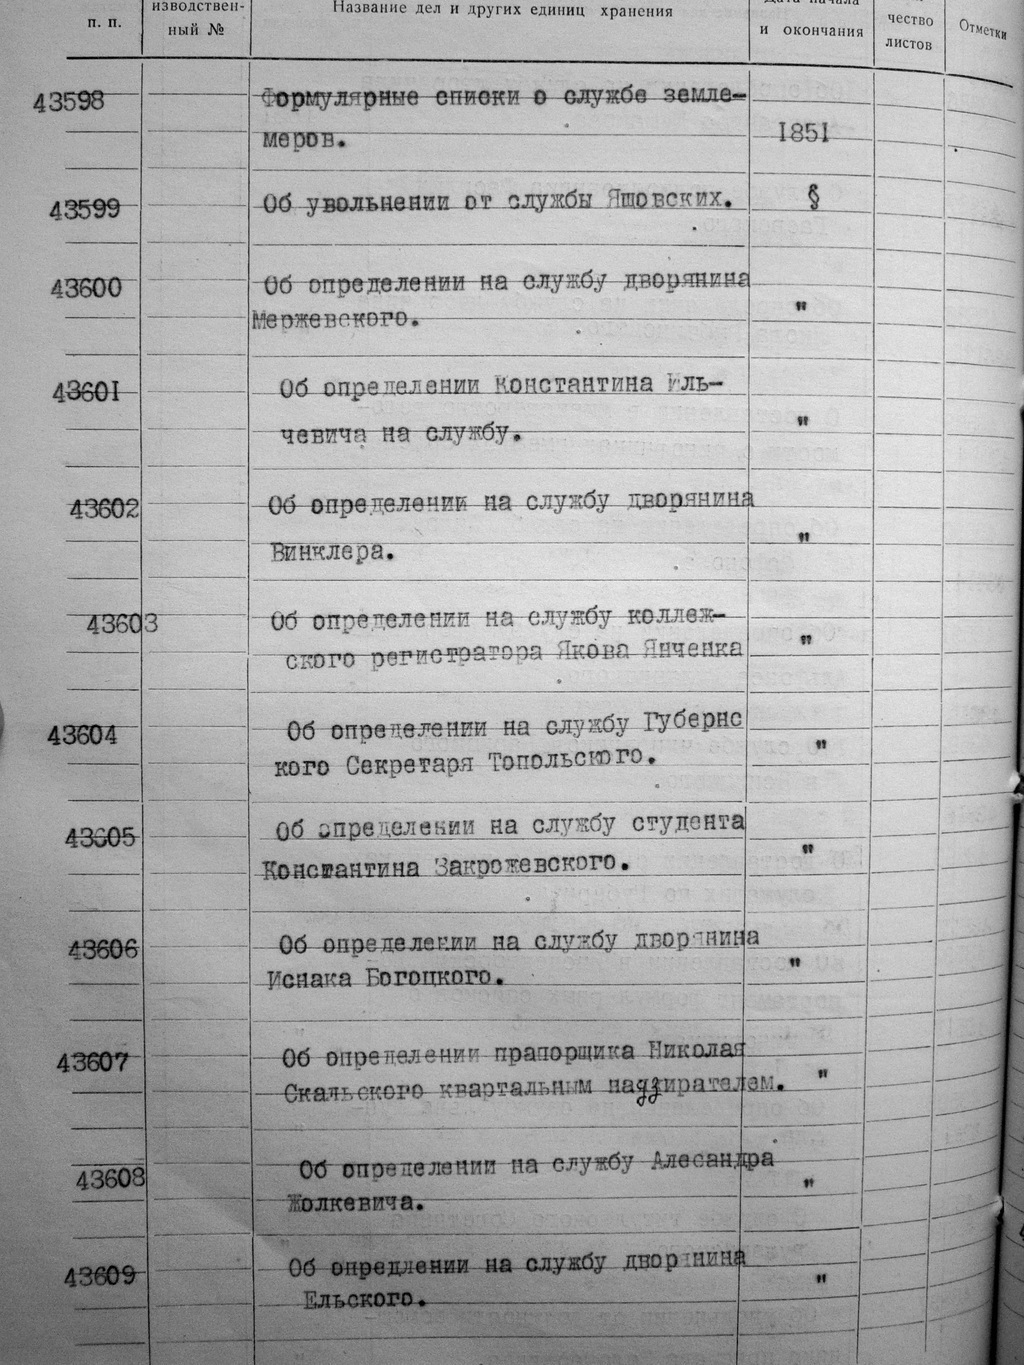 п. п.
изводствен-
ный №
Название дел и других единиц хранения
Дата начала
и окончания
чество
листов
Отметки
43598
Формулярные списки о службе земле-
меров.
1851
43599
Об увольнении от службы Яшовских.
§
43600
Об определении на службу дворянина
Мержевского.
"
43601
Об определении Константина Иль-
чевича на службу.
"
43602
Об определении на службу дворянина
Винклера.
"
43603
Об определении на службу коллеж-
ского регистратора Якова Янченка
"
43604
Об определении на службу Губернс
кого Секретаря Топольского.
"
43605
Об определении на службу студента
Константина Закрожевского.
"
43606
Об определении на службу дворянина
Иснака Богоцкого.
"
43607
Об определении прапорщика Николая
Скальского квартальным надзирателем.
"
43608
Об определении на службу Алесандра
Жолкевича.
"
43609
Об опредлении на службу дворянина
Ельского.
"